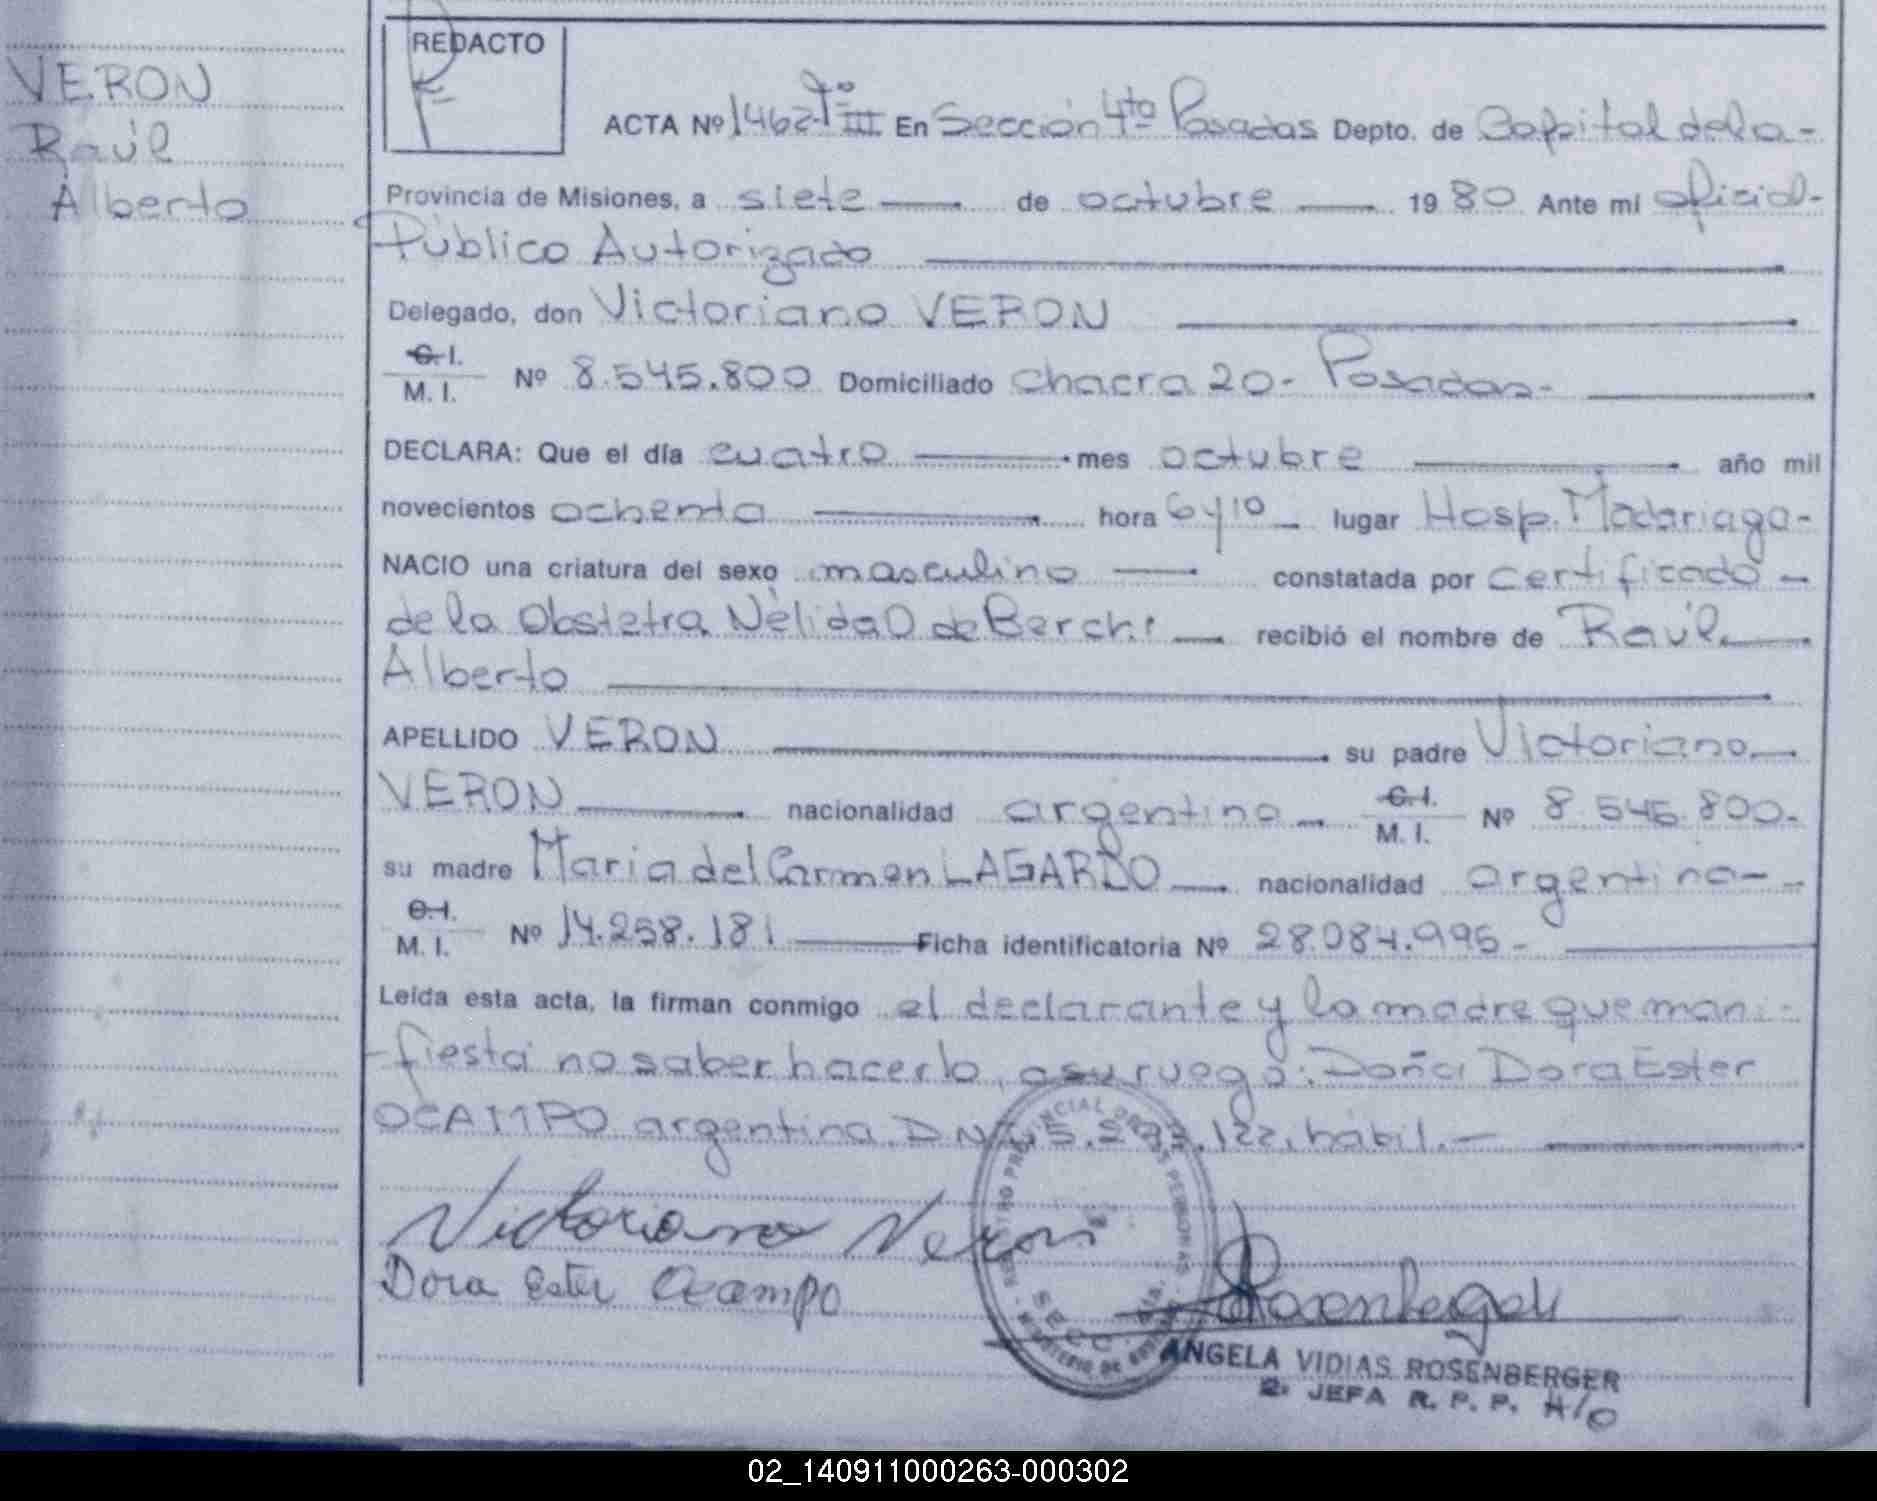 VERON
Raúl
Alberto
REDACTO
ACTA Nº 1462 Tº III En Sección 4ta Posadas Depto. de Capital de la-
Provincia de Misiones, a siete de octubre 19 80 Ante mi oficial-
Público Autorizado
Delegado, don Victoriano VERON
C. I.
M. I. Nº 8.545.800 Domiciliado chacra 20- Posadas-
DECLARA: Que el día cuatro mes octubre año mil
novecientos ochenta hora 6 y 10 lugar Hosp. Madariaga-
NACIO una criatura del sexo masculino constatada por certificado-
de la Obstetra Nélida O de Berchi recibió el nombre de Raúl
Alberto
APELLIDO VERON su padre Victoriano
VERON nacionalidad argentino C. I.
M. I. Nº 8.545.800-
su madre Maria del Carmen LAGARDO nacionalidad argentina--
C. I.
M. I. Nº 14.258.181 Ficha identificatoria Nº 28.084.995-
Leída esta acta, la firman conmigo el declarante y la madre que mani-
fiesta no saber hacerlo, a su ruego: Doña Dora Ester
OCAMPO argentina, DNI 122, hábil.-
Victoriano Veron
Dora Ester Ocampo
REGISTRO PROVINCIAL DE LAS PERSONAS
SECC. 4ta.
MINISTERIO DE GOBIERNO
ANGELA VIDIAS ROSENBERGER
2· JEFA R. P. P. A/C
02_140911000263-000302